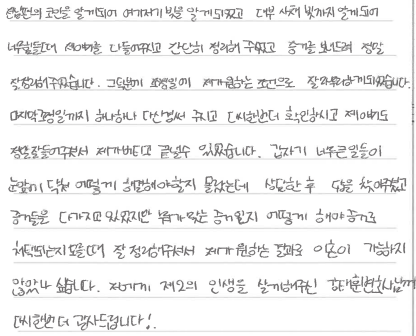 전남편의 코인을 알게되어 여기저기 빚을 알게되었고 대부 사채 빚까지 알게되어
너무힘들때 제얘기를 다들어주시고 간단히 정리해 주셨고 증거를 보내드려 정말
잘정리해주셨습니다. 그덕분에 조정일에 제가원하는 조건으로 잘마무리하게되었습니다.
마지막조정일까지 하나하나 다신경써 주시고 다시한번더 확인하시고 제얘기도
정말잘들어주셔서 제가버티고 끝낼수 있었습니다. 갑자기 너무큰일들이
눈앞에 닥쳐 어떻게 해야할지 몰랐는데 상담한 후 답을 찾아주셨고
증거들을 다가지고 있었지만 뭐가맞는 증거인지 어떻게 해야 증거로
채택되는지모를때 잘 정리해주셔서 제가 원하는 결과로 이혼이 가능하지
않았나 싶습니다. 저에게 제2의 인생을 살게해주신 변호사님께
다시한번더 감사드립니다!.